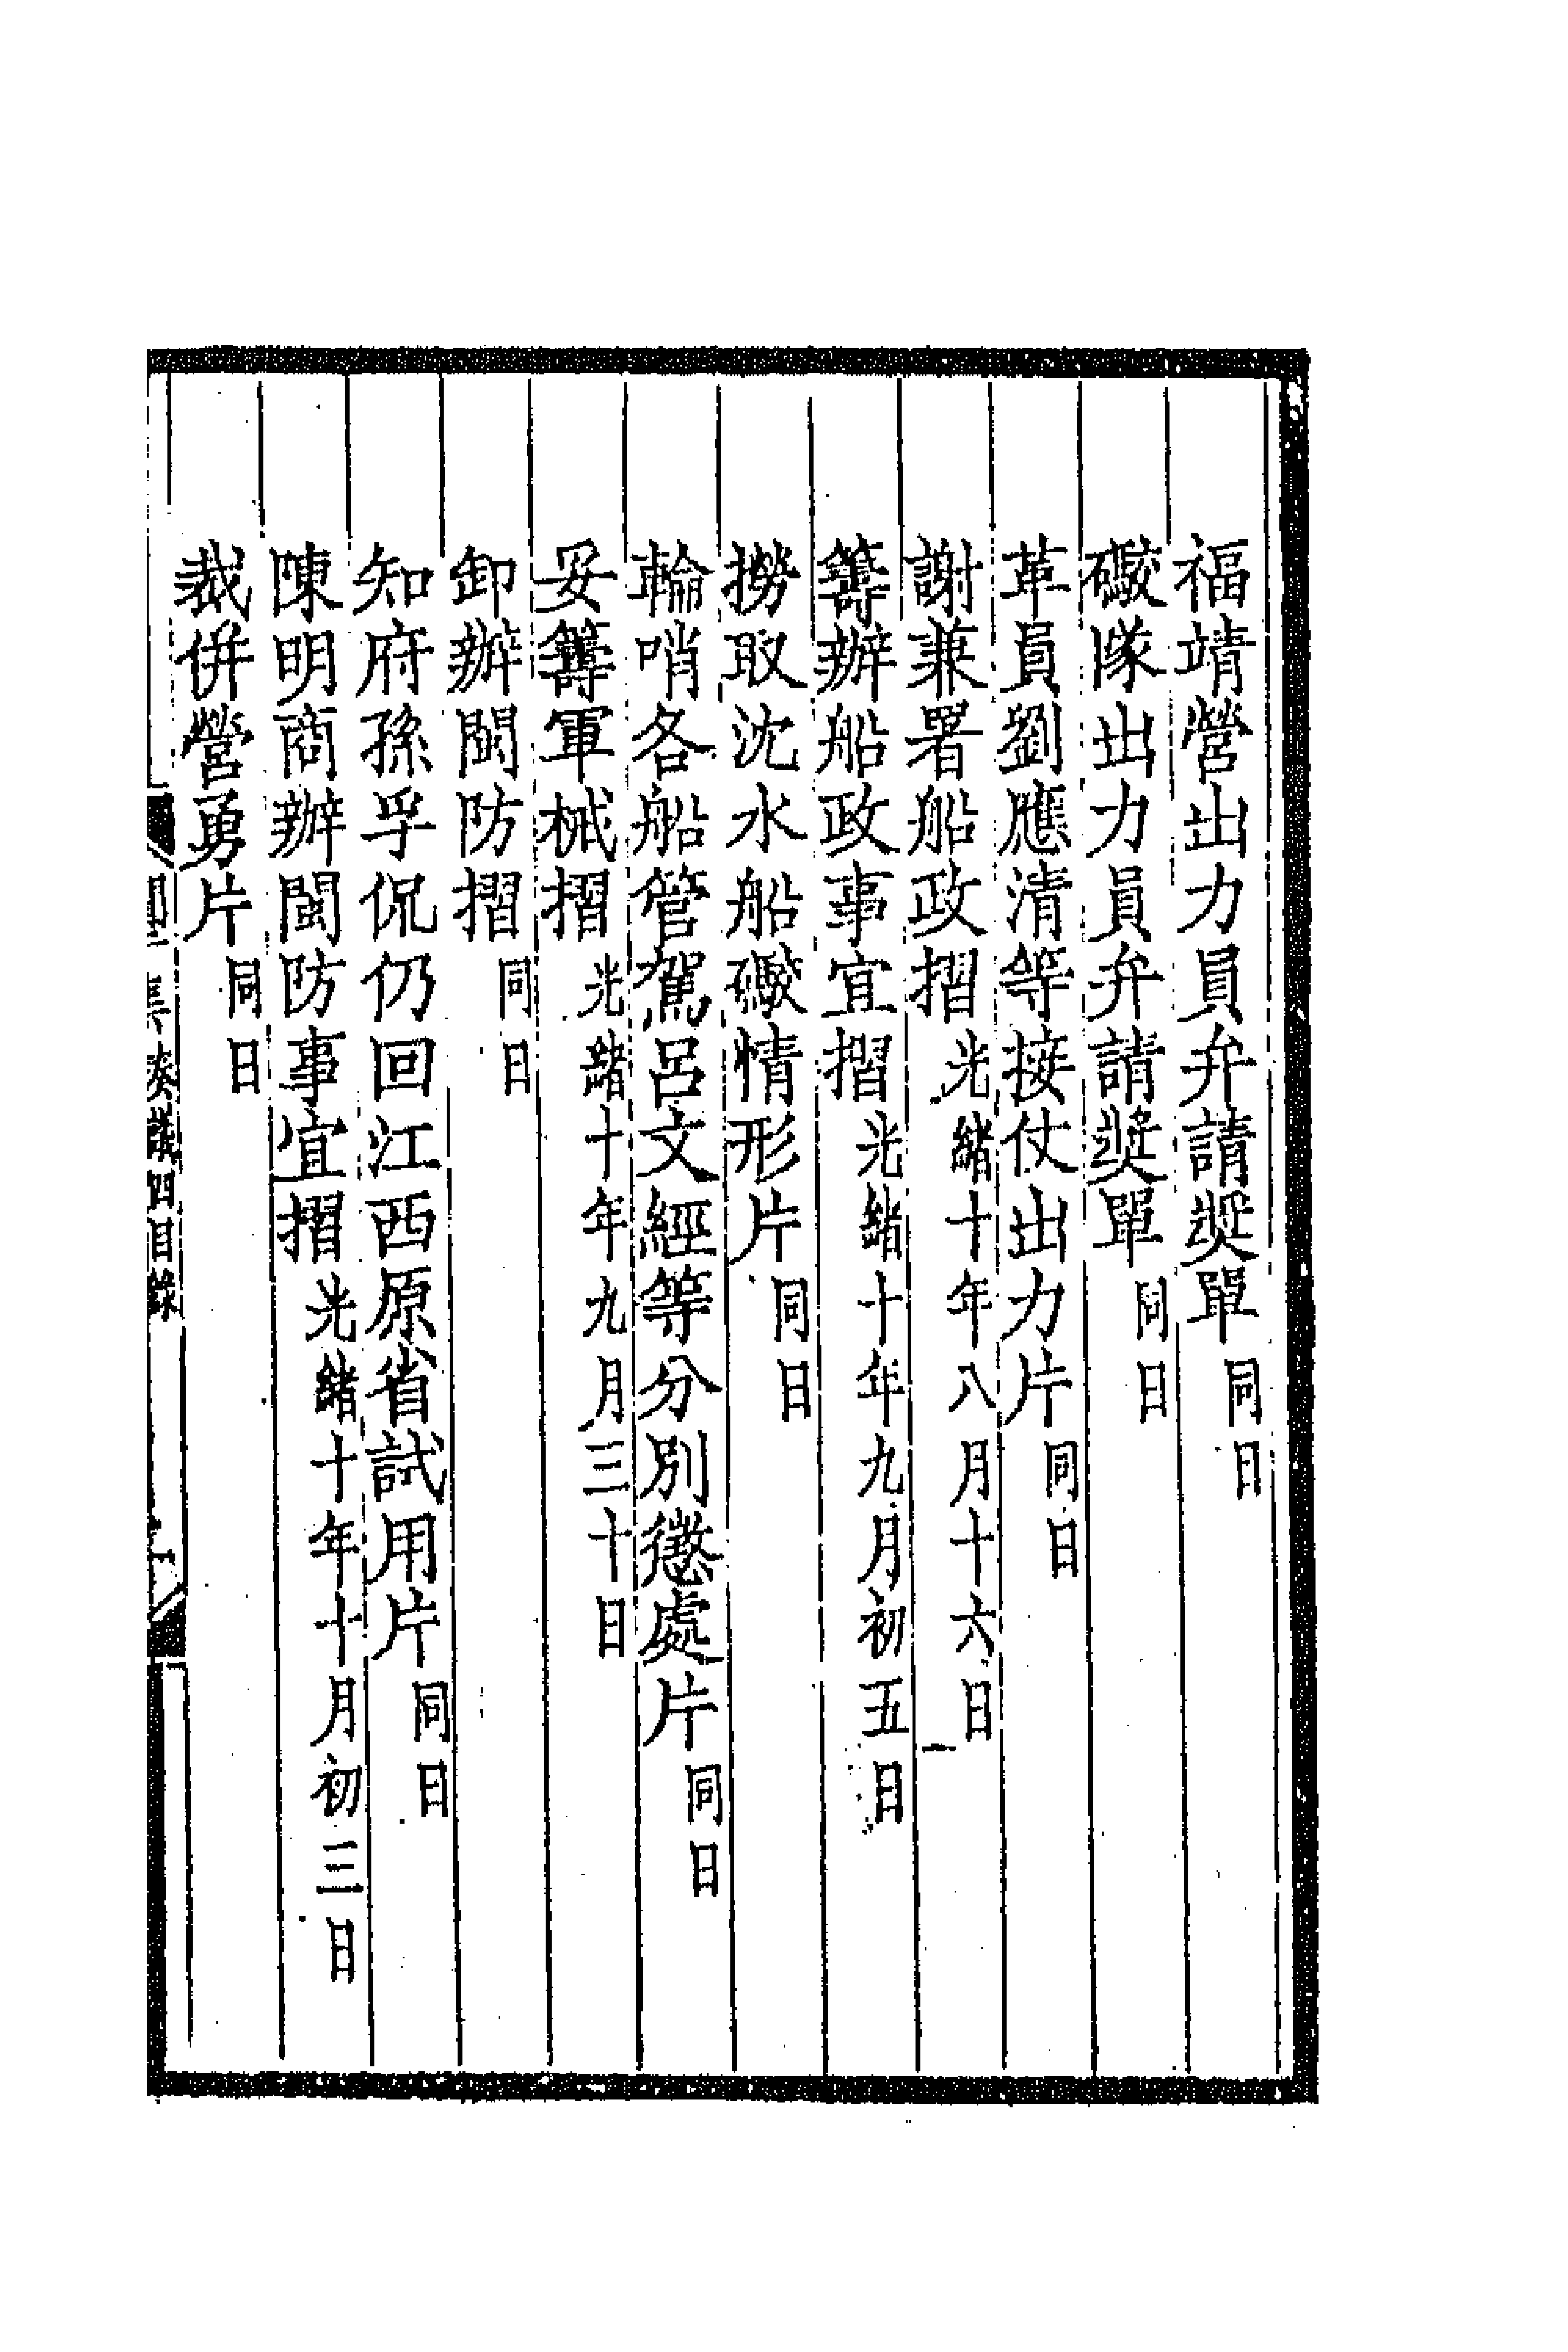 福靖營出力員弁請奬單同日
礮隊出力員弁請奬單同日
革員劉應清等接仗出力片同日
謝兼署船政摺光緒十年八月十六日
籌辦船政事宜摺光緒十年九月初五日
撈取沈水船礮情形片同日
輪哨各船管駕呂文經等分別懲處片同日
妥籌軍械摺光緒十年九月三十日
卸辦閩防摺同日
知府孫孚侃仍回江西原省試用片同日
陳明商辦閩防事宜摺光緒十年十月初三日
裁併營勇片同日
奏議四目錄